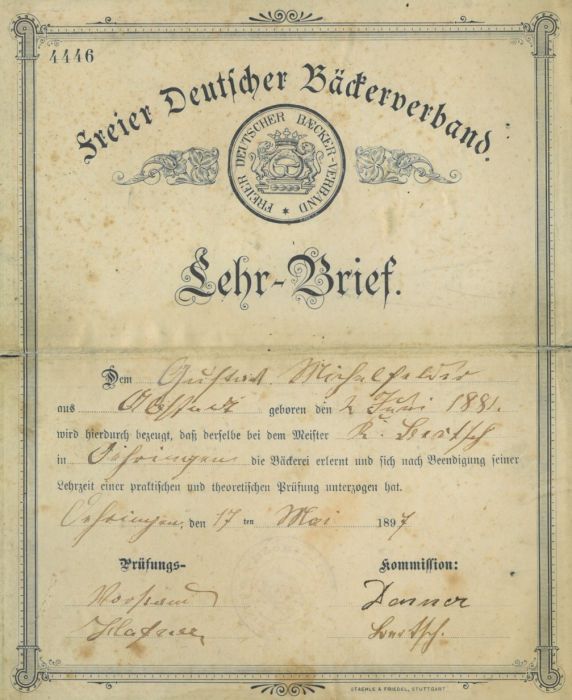 4446
Freier Deutscher Bäckerverband.
FREIER DEUTSCHER BÆCKER-VERBAND
Lehr-Brief.
Dem Gustav Michelfelder
aus geboren den 2 Juni 1881.
wird hierdurch bezeugt, daß derselbe bei dem Meister K. Bertsch
in Oehringen die Bäckerei erlernt und sich nach Beendigung seiner
Lehrzeit einer praktischen und theoretischen Prüfung unterzogen hat.
Oehringen, den 17 ten Mai 1897
Prüfungs- Kommission:
Vorstand Danner
Bertsch.
STAEHLE & FRIEDEL, STUTTGART